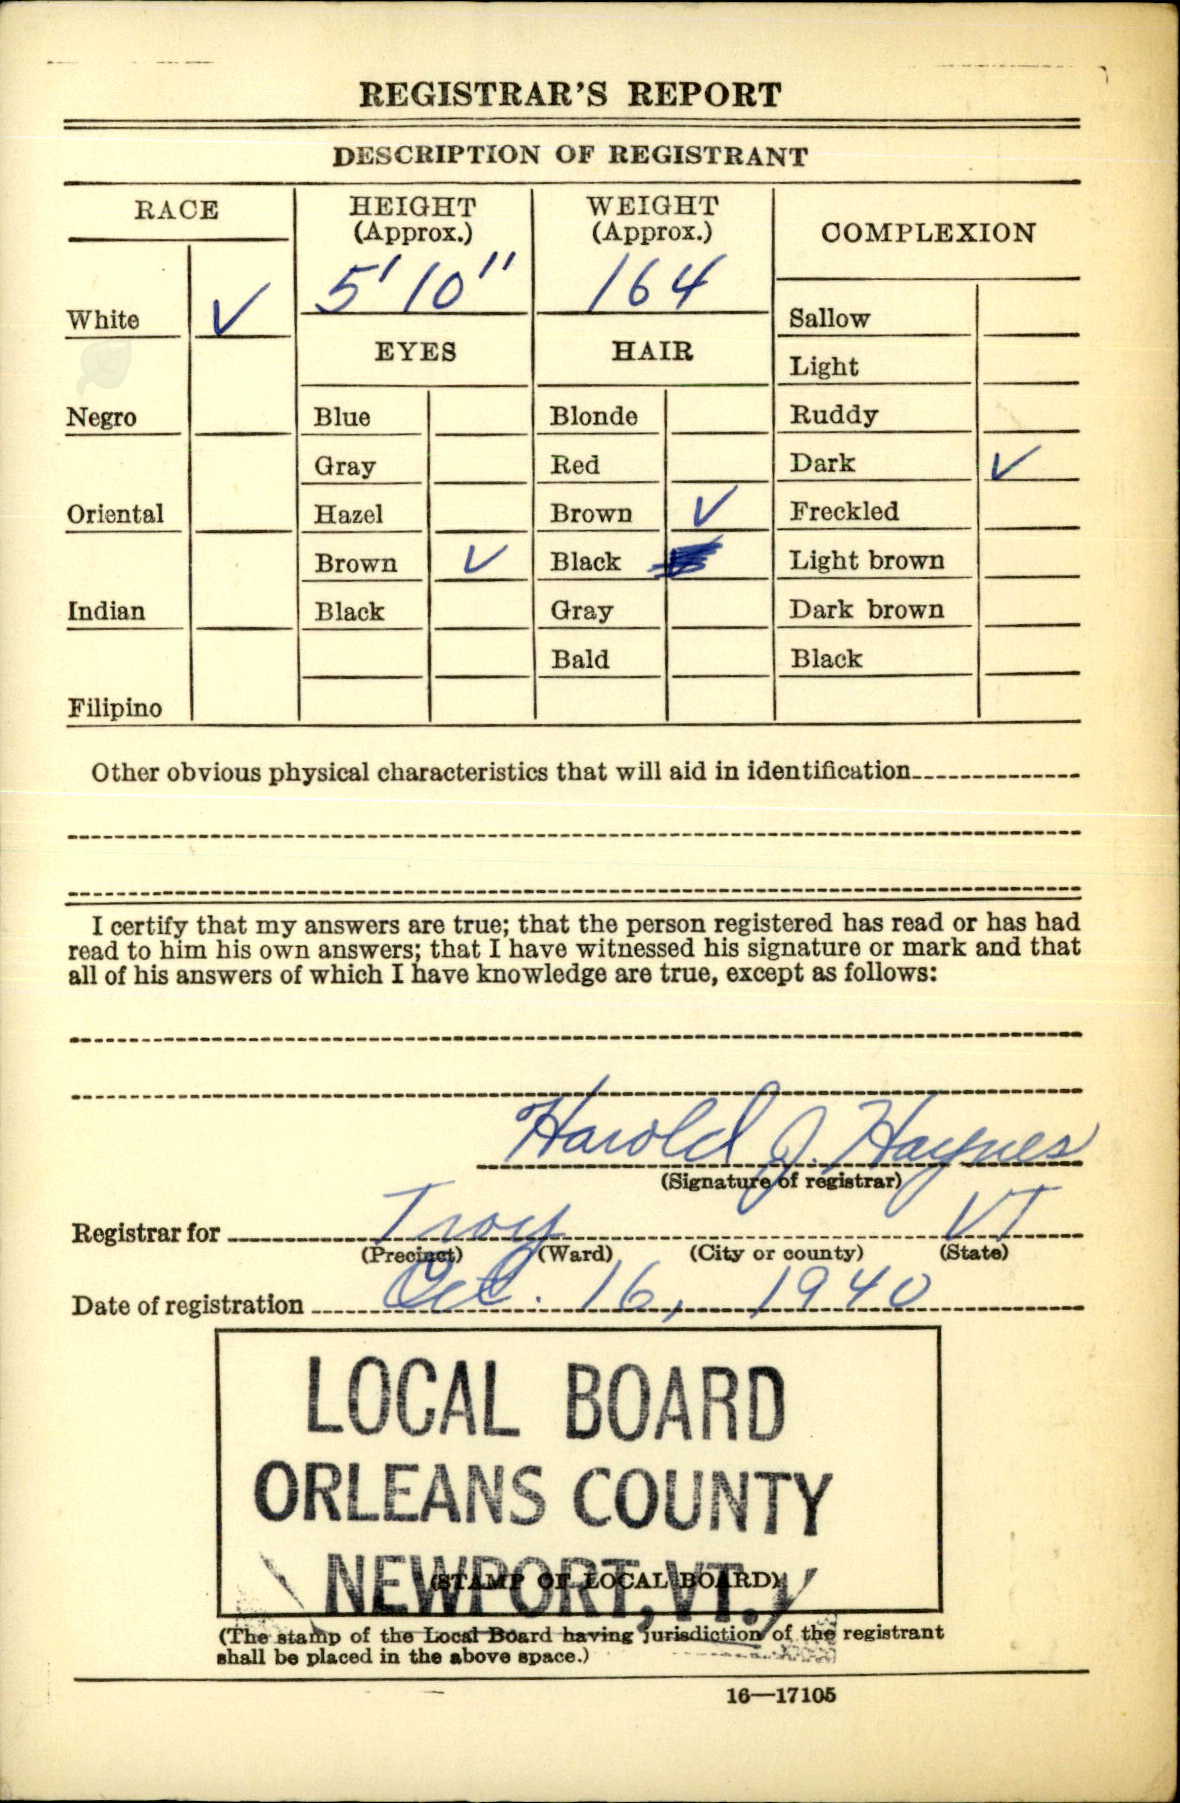 REGISTRAR'S REPORT
DESCRIPTION OF REGISTRANT
RACE
HEIGHT
(Approx.)
WEIGHT
(Approx.)
COMPLEXION
5' 10"
164
White ✓
Sallow
EYES
HAIR
Light
Negro
Blue
Blonde
Ruddy
Gray
Red
Dark ✓
Oriental
Hazel
Brown ✓
Freckled
Brown ✓
Black
Light brown
Indian
Black
Gray
Dark brown
Bald
Black
Filipino
Other obvious physical characteristics that will aid in identification
I certify that my answers are true; that the person registered has read or has had
read to him his own answers; that I have witnessed his signature or mark and that
all of his answers of which I have knowledge are true, except as follows:
Harold J. Haynes
(Signature of registrar)
Registrar for Troy VT
(Precinct) (Ward) (City or county) (State)
Date of registration Oct. 16, 1940
LOCAL BOARD
ORLEANS COUNTY
NEWPORT, VT.
(STAMP OF LOCAL BOARD)
(The stamp of the Local Board having jurisdiction of the registrant
shall be placed in the above space.)
16—17105